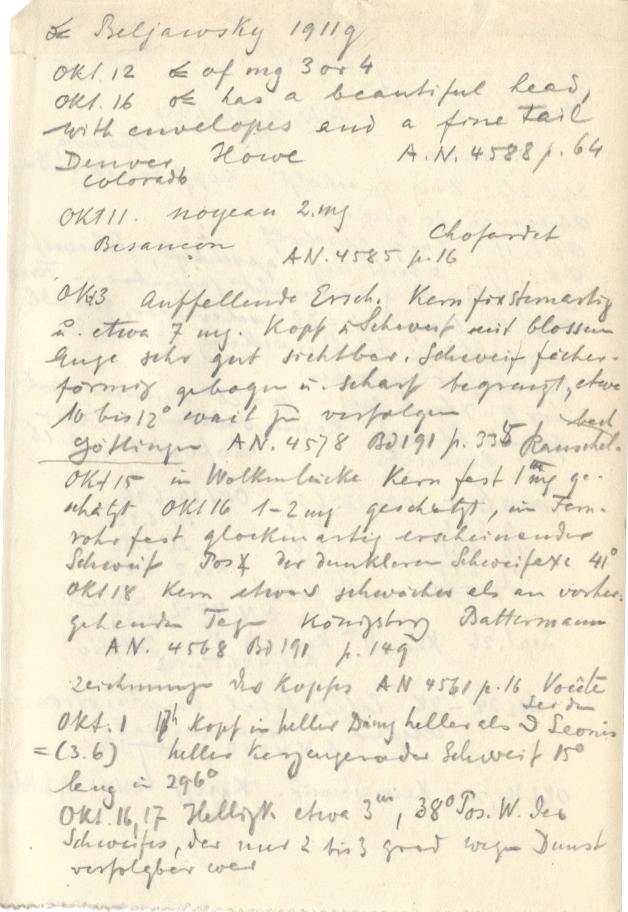 ☄ Beljawsky 1911g
Okt. 12 ☄ of mg 3 or 4
Okt. 16 ☄ has a beautiful head,
with envelopes and a fine tail
Denver, Howe A.N. 4588 p. 64
Colorado
Okt 11. noyeau 2. mg
Chofardet
Besancon
AN. 4585 p. 16
Okt 3 Auffellende Ersch. Kern fixsternartig
u. etwa 7 mg. Kopf u Schweif mit blossem
Auge sehr gut sichtbar. Schweif fächer-
förmig gebogen u. scharf begrenzt, etwa
10 bis 12° weit zu verfolgen
Göttingen AN. 4578 Bd 191 p. 335
Okt 15 in Wolkenlücke Kern fast 1 mg ge-
schätzt Okt 16 1-2 mg geschätzt, im Fern-
rohr fast erscheinender
Schweif Pos ∡ der dunkleren Schweifaxe 41°
Okt 18 Kern etwas schwächer als an vorher-
gehenden Tage Königsberg Battermann
AN. 4568 Bd 191 p. 149
Zeichnung des Kopfes AN 4561 p. 16 Voûte
Okt. 1 17h Kopf in heller Dämg heller als Leonis
= (3.6) heller kerzengerader Schweif 15°
lang in 296°
Okt. 16, 17 Helligk etwa 3m, 38° Pos. W. des
Schweifes, der nur 2 bis 3 grad wegen Dunst
verfolgbar war